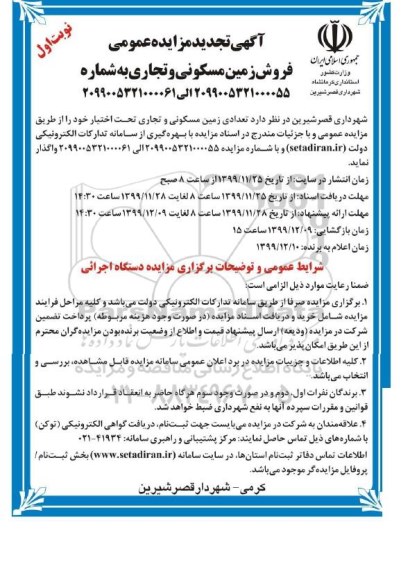 نوبت اول
آگهی تجدید مزایده عمومی
فروش زمین مسکونی و تجاری به شماره
۲۰۹۹۰۰۵۳۲۱۰۰۰۰۵۵ الی ۲۰۹۹۰۰۵۳۲۱۰۰۰۰۶۱
جمهوری اسلامی ایران
وزارت کشور
استانداری کرمانشاه
شهرداری قصرشیرین
شهرداری قصرشیرین در نظر دارد تعدادی زمین مسکونی و تجاری تحت اختیار خود را از طریق
مزایده عمومی و با جزئیات مندرج در اسناد مزایده با بهره‌گیری از سامانه تدارکات الکترونیکی
دولت (setadiran.ir) و با شماره مزایده ۲۰۹۹۰۰۵۳۲۱۰۰۰۰۵۵ الی ۲۰۹۹۰۰۵۳۲۱۰۰۰۰۶۱ واگذار
نماید.
زمان انتشار در سایت: از تاریخ ۱۳۹۹/۱۱/۲۵ از ساعت ۸ صبح
مهلت دریافت اسناد: از تاریخ ۱۳۹۹/۱۱/۲۵ ساعت ۸ لغایت ۱۳۹۹/۱۱/۲۸ ساعت ۱۴:۳۰
مهلت ارائه پیشنهاد: از تاریخ ۱۳۹۹/۱۱/۲۸ ساعت ۸ لغایت ۱۳۹۹/۱۲/۰۹ ساعت ۱۴:۳۰
زمان بازگشایی: ۱۳۹۹/۱۲/۰۹ ساعت ۱۵
زمان اعلام به برنده: ۱۳۹۹/۱۲/۱۰
شرایط عمومی و توضیحات برگزاری مزایده دستگاه اجرائی
ضمنا رعایت موارد ذیل الزامی است:
۱. برگزاری مزایده صرفا از طریق سامانه تدارکات الکترونیکی دولت می‌باشد و کلیه مراحل فرایند
مزایده شامل خرید و دریافت اسناد مزایده (در صورت وجود هزینه مربوطه) پرداخت تضمین
شرکت در مزایده (ودیعه) ارسال پیشنهاد قیمت و اطلاع از وضعیت برنده بودن مزایده‌گران محترم
از این طریق امکان پذیر می‌باشد.
۲. کلیه اطلاعات و جزییات مزایده در برد اعلان عمومی سامانه مزایده قابل مشاهده، بررسی و
انتخاب می‌باشد.
۳. برندگان نفرات اول، دوم و در صورت وجود سوم هرگاه حاضر به انعقاد قرارداد نشوند طبق
قوانین و مقررات سپرده آنها به نفع شهرداری ضبط خواهد شد.
۴. علاقه‌مندان به شرکت در مزایده می‌بایست جهت ثبت‌نام، دریافت گواهی الکترونیکی (توکن)
با شماره‌های ذیل تماس حاصل نمایند: مرکز پشتیبانی و راهبری سامانه: ۴۱۹۳۴-۰۲۱
اطلاعات تماس دفاتر ثبت‌نام استان‌ها، در سایت سامانه (www.setadiran.ir) بخش ثبت‌نام/
پروفایل مزایده‌گر موجود می‌باشد.
کرمی - شهردار قصرشیرین